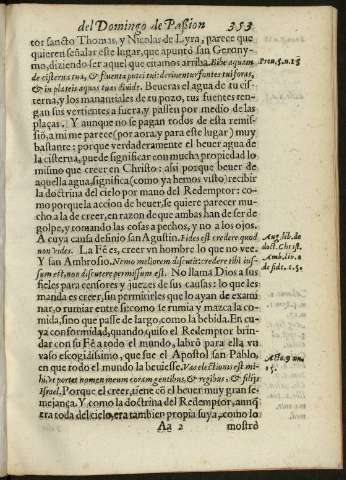 del Domingo de Passion 353
tor sancto Thomas, y Nicolas de Lyra, parece que
quieren señalar este lugar, que apuntó san Gerony-
mo, diziendo ser aquel que citamos arriba. Bibe aquam
de cisterna tua, & fluenta putei tui: deriuentur fontes tui foras,
& in plateis aquas tuas diuide. Beueras el agua de tu cis-
terna, y los manantiales de tu pozo, tus fuentes ten-
gan sus vertientes a fuera, y passen por medio de las
plaças. Y aunque no se pagan todos de esta remis-
sió, a mi me parece (por aora, y para este lugar) muy
bastante: porque verdaderamente el beuer agua de
la cisterna, puede significar con mucha propiedad lo
mismo que creer en Christo: assi porque beuer de
aquella agua, significa (como ya hemos visto) recibir
la doctrina del cielo por mano del Redemptor: co-
mo porque la accion de beuer, se quiere parecer mu-
cho a la de creer, en razon de que ambas han de ser de
golpe, y tomando las cosas a pechos, y no a los ojos.
A cuya causa definio san Agustin. Fides est credere quod
non vides. La Fè es, creer vn hombre lo que no vee.
Y san Ambrosio. Nemo meliorem discutit: credere tibi ius-
sum est, non discutere permissum est. No llama Dios a sus
fieles para censores y juezes de sus causas: lo que les
manda es creer, sin permitirles que lo ayan de exami-
nar, o rumiar entre si: como se rumia y mazca la co-
mida, sino que passe de largo, como la bebida. En cu-
ya conformidad, quando quiso el Redemptor brin-
dar con su Fè a todo el mundo, labró para ella vn
vaso escogidissimo, que fue el Apostol san Pablo,
en que todo el mundo la beuiesse. Vas electionis est mi-
hi, vt portet nomen meum coram gentibus, & regibus, & filijs
Israel. Porque el creer, tiene cõ el beuer muy gran se-
mejança. Y como la doctrina del Redemptor, aunq̃
era toda del cielo, era tambien propia suya, como lo
Aa 2 mostrò
Prou. 5. n. 15
Aug. lib. de
doct. Christ.
Amb. liv. 1
de fide. c. 5.
Acto. 9. nu.
15.